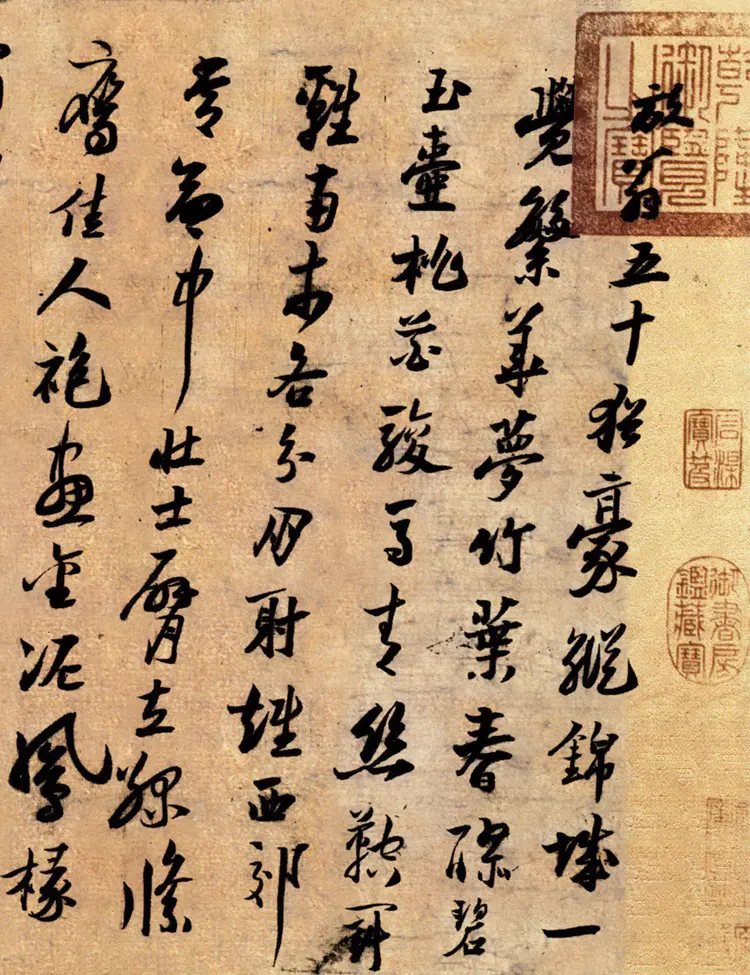 乾隆
御覽
之寶
石渠
寶笈
御書房
鑑藏寶
放翁五十猶豪縱錦城一
覺繁華夢竹葉春醪碧
玉壺桃花駿馬青絲鞚鬭
雞南市各分朋射雉西郊
常命中壯士臂立綠絛
鷹佳人袍畫金泥鳳椽